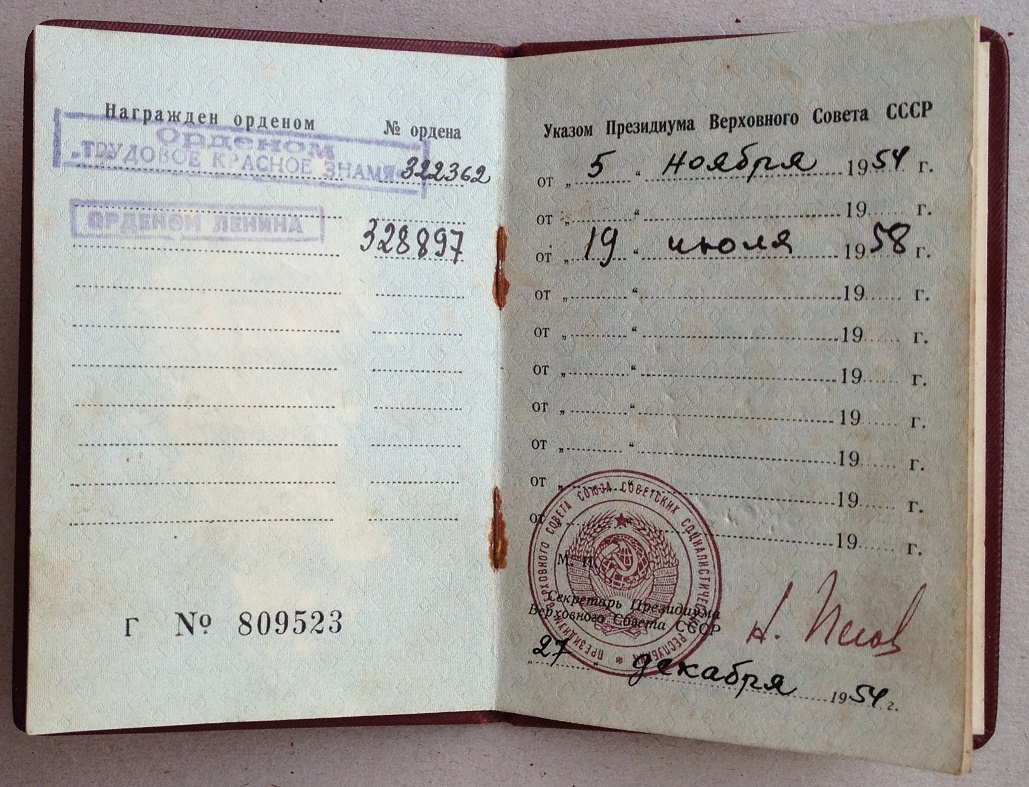 Награжден орденом № ордена
Орденом
„ТРУДОВОЕ КРАСНОЕ ЗНАМЯ“ 322362
ОРДЕНОМ ЛЕНИНА
328897
Г № 809523
Указом Президиума Верховного Совета СССР
от „5“ ноября 1954 г.
от „ “ 19 г.
от „19“ июля 1958 г.
от „ “ 19 г.
от „ “ 19 г.
от „ “ 19 г.
от „ “ 19 г.
от „ “ 19 г.
от „ “ 19 г.
от „ “ 19 г.
ПРЕЗИДИУМ ВЕРХОВНОГО СОВЕТА СОЮЗА СОВЕТСКИХ СОЦИАЛИСТИЧЕСКИХ РЕСПУБЛИК
М. П.
Секретарь Президиума
Верховного Совета СССР
Н. Пегов
„27“ декабря 1954 г.